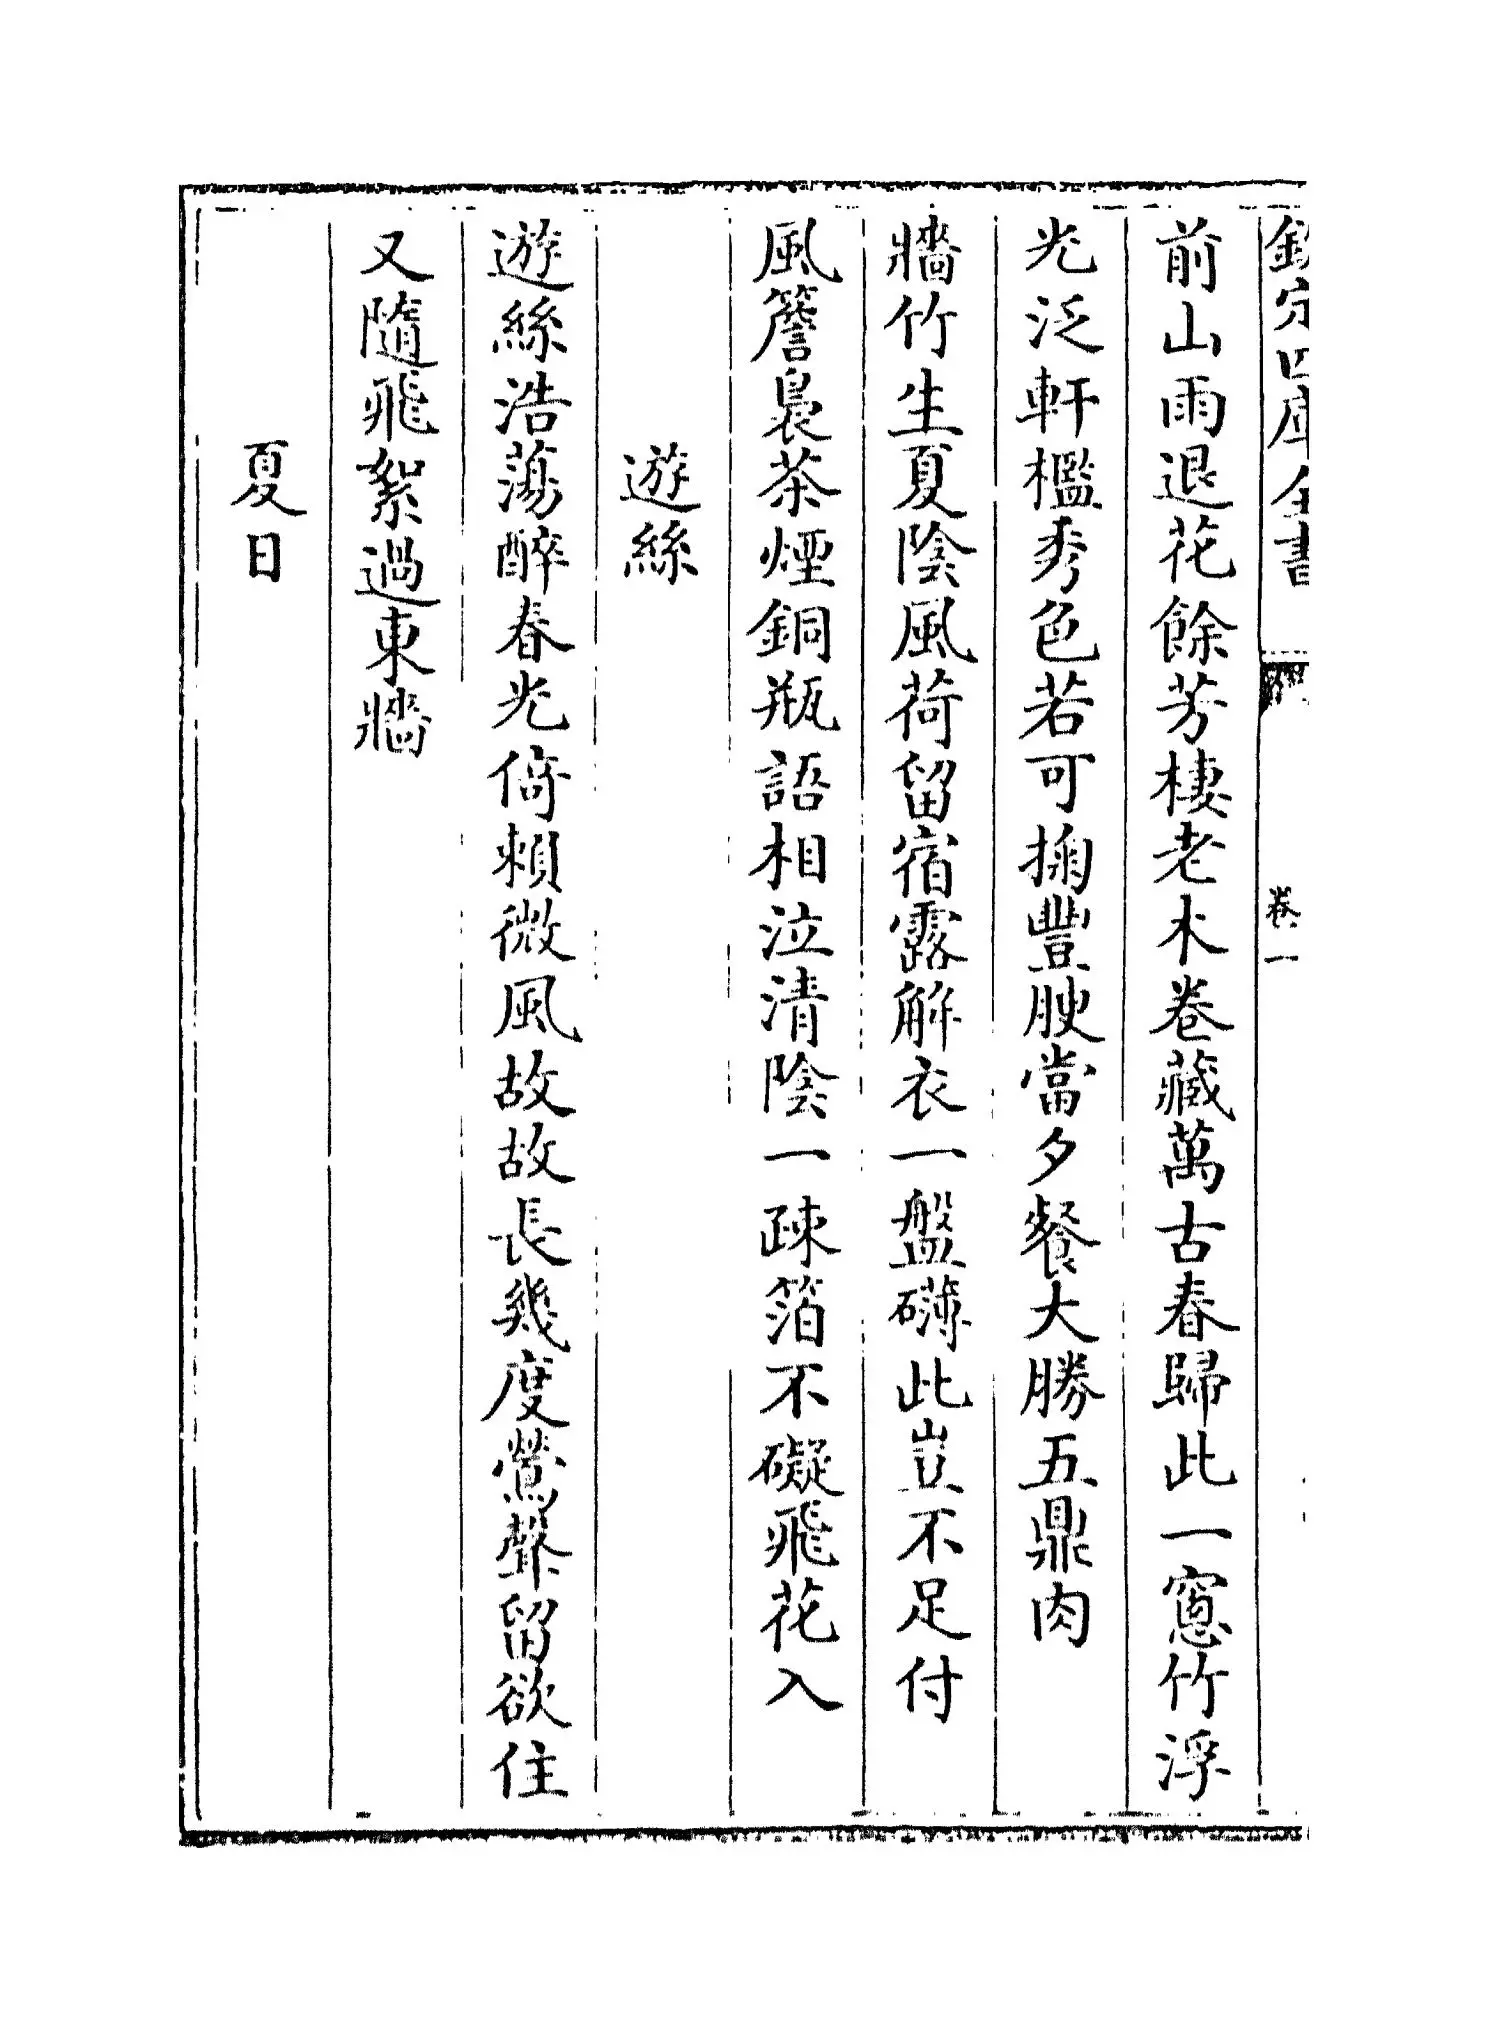 欽定四庫全書
卷一
前山雨退花餘芳棲老木卷藏萬古春歸此一窻竹浮
光泛軒檻秀色若可掬豐腴當夕餐大勝五鼎肉
牆竹生夏陰風荷留宿露解衣一盤礴此豈不足付
風簷裊茶煙銅瓶語相泣清陰一疎箔不礙飛花入
遊絲
遊絲浩蕩醉春光倚賴微風故故長幾度鶯聲留欲住
又隨飛絮過東牆
夏日